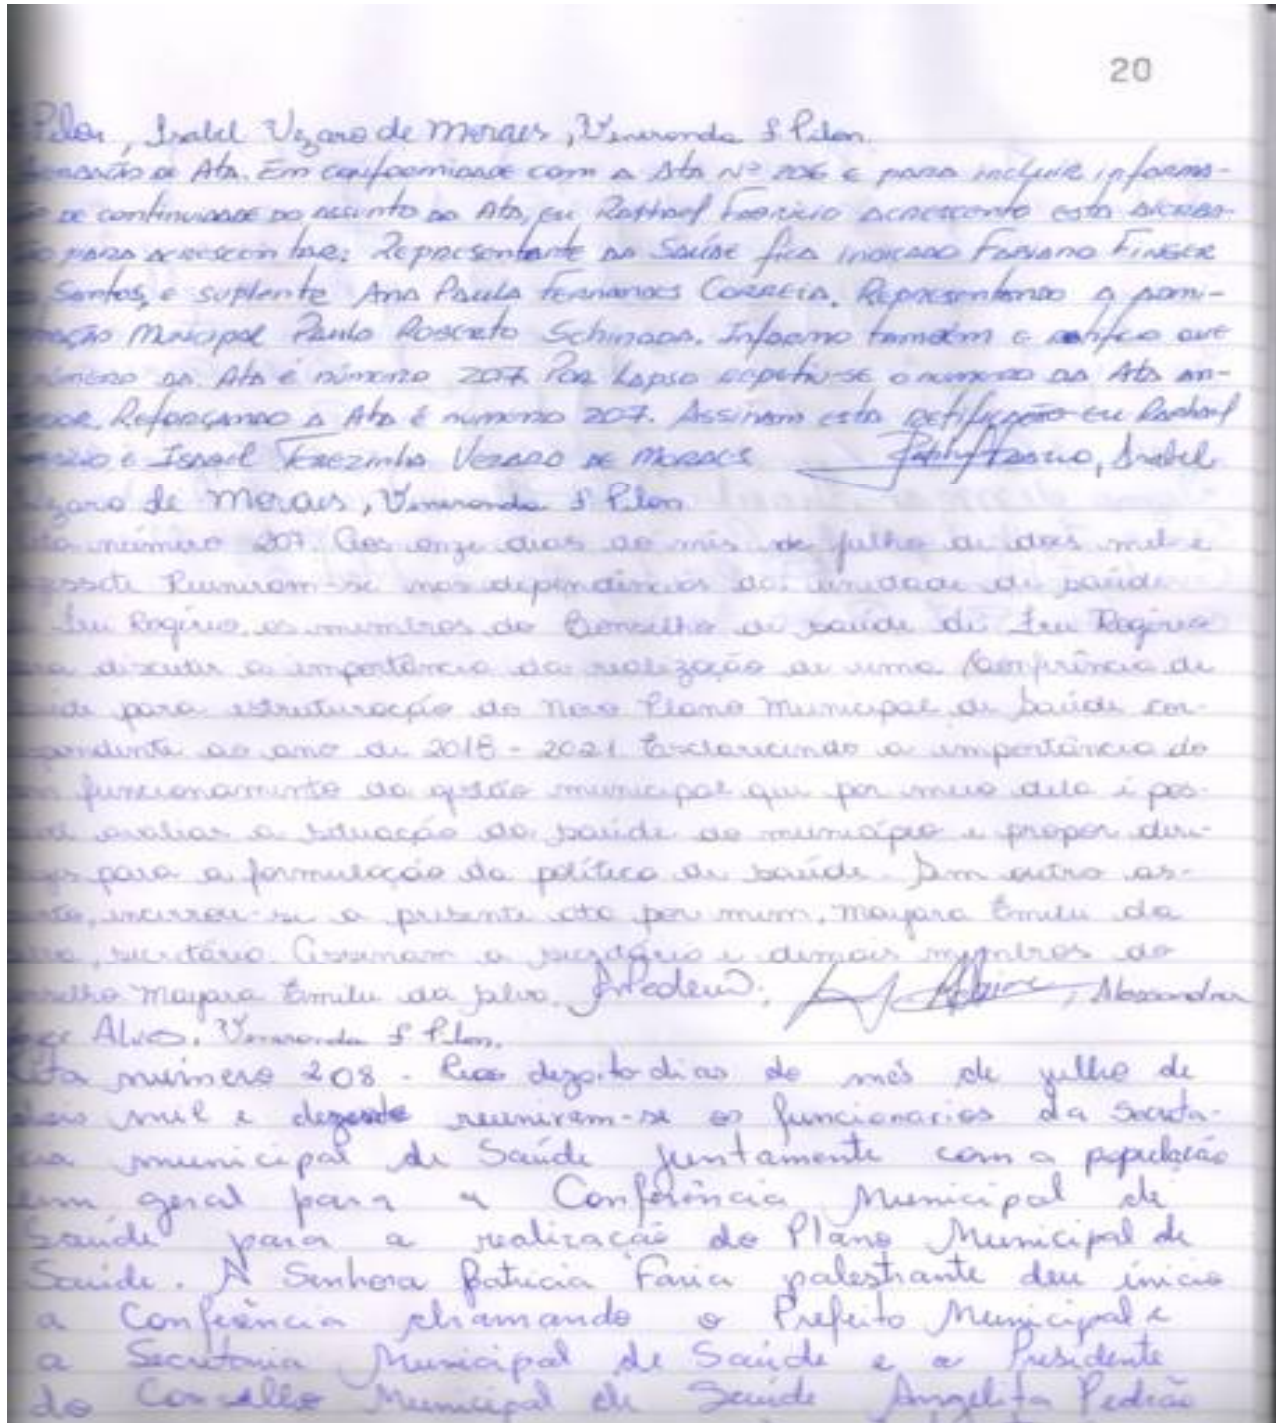 20
Pilon, Isabel Vezaro de Moraes, Veneranda S Pilon.
de Ata. Em conformidade com a Ata Nº 206 e para incluir informa-
de continuidade do assunto da Ata, eu Raphael Fabrício acrescento esta
para acrescentar: Representante da Saúde fica indicado Fabiano Finger
Santos, e suplente Ana Paula Fernandes Correia. Representando a admi-
Municipal Paulo Roberto Schinada. Informo também e ratifico que
número da Ata é número 207. Por lapso repetiu-se o número da Ata an-
Reforçando a Ata é número 207. Assinam esta retificação eu Raphael
e Isabel Terezinha Vezaro de Moraes, Isabel
de Moraes, Veneranda S Pilon.
número 207. Aos onze dias do mês de julho de dois mil e
Reuniram-se nas dependências da unidade de saúde
Rogério, os membros do Conselho de saúde de Rogério
discutir a importância da realização de uma Conferência de
para estruturação do Novo Plano Municipal de Saúde cor-
ao ano de 2018 - 2021 Esclarecendo a importância do
funcionamento da gestão municipal que por meio dela é pos-
avaliar a situação da saúde do município e propor dire-
para a formulação da política de saúde. Sem outro as-
encerrou-se a presente ata por mim, Mayara Emilu da
secretária. Assinam a secretária e demais membros do
Mayara Emilu da Silva, Alessandra
Alves, Veneranda S Pilon.
Ata número 208 - Aos dezoito dias do mês de julho de
dois mil e dezessete reuniram-se os funcionarios da Secreta-
ria municipal de Saúde juntamente com a população
em geral para a Conferência Municipal de
Saúde para a realização do Plano Municipal de
Saúde. A Senhora Patricia Faria palestrante deu inicio
a Conferência chamando o Prefeito Municipal e
a Secretaria Municipal de Saúde e a Presidente
do Conselho Municipal de Saúde Angelita Pedrão